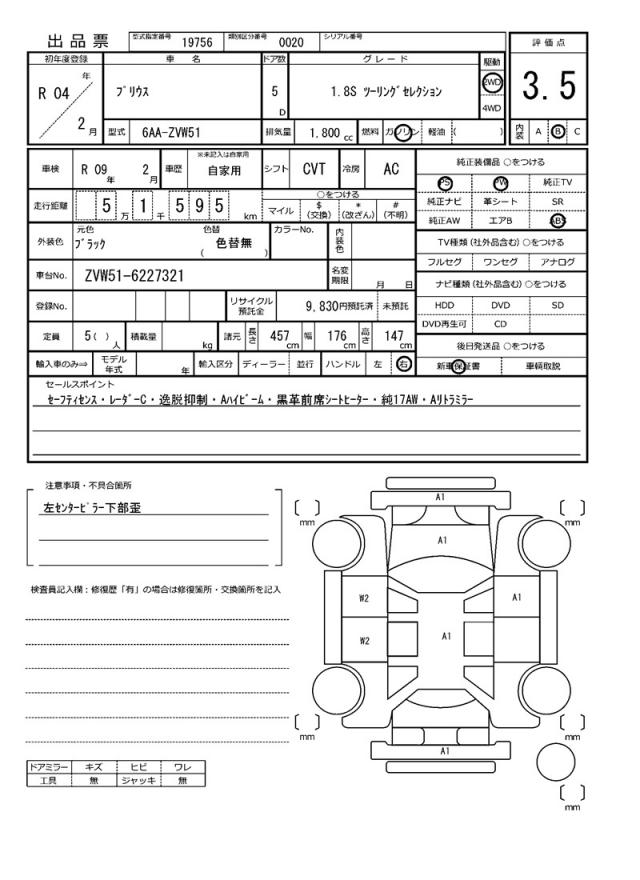 出品票 型式指定番号 19756 類別区分番号 0020 シリアル番号
評価点
3.5
内装 A B C
初年度登録 車名 ドア数 グレード 駆動
R 04 年 2 月 ﾌﾟﾘｳｽ 5 D 1.8S ﾂｰﾘﾝｸﾞｾﾚｸｼｮﾝ 2WD
4WD
型式 6AA-ZVW51 排気量 1.800 cc 燃料 ガソリン 軽油 ( )
車検 R 09 年 2 月 車歴 ※未記入は自家用 自家用 シフト CVT 冷房 AC
走行距離 5 万 1 千 5 9 5 km
○をつける
マイル $(交換) *(改ざん) #(不明)
外装色 元色 ﾌﾞﾗｯｸ 色替 色替無 ( ) カラーNo. 内装色
車台No. ZVW51-6227321 名変期限 月 日
登録No. リサイクル預託金 9,830円預託済 未預託
定員 5 ( ) 人 積載量 kg 諸元 長さ 457 cm 幅 176 cm 高さ 147 cm
輸入車のみ⇒ モデル年式 年 輸入区分 ディーラー 並行 ハンドル 左 右
純正装備品 ○をつける
PS PW 純正TV
純正ナビ 革シート SR
純正AW エアB ABS
TV種類 (社外品含む) ○をつける
フルセグ ワンセグ アナログ
ナビ種類 (社外品含む) ○をつける
HDD DVD SD
DVD再生可 CD
後日発送品 ○をつける
新車保証書 車輌取説
セールスポイント
ｾｰﾌﾃｨｾﾝｽ・ﾚｰﾀﾞｰC・逸脱抑制・Aﾊｲﾋﾞｰﾑ・黒革前席ｼｰﾄﾋｰﾀｰ・純17AW・Aﾘﾄﾗﾐﾗｰ
注意事項・不具合箇所
左ｾﾝﾀｰﾋﾟﾗｰ下部歪
検査員記入欄：修復歴「有」の場合は修復箇所・交換箇所を記入
ドアミラー キズ ヒビ ワレ
工具 無 ジャッキ 無
A1
[ ] mm [ ] mm
A1
W2 A1
W2 A1
[ ] mm [ ] mm
A1
[ ] mm